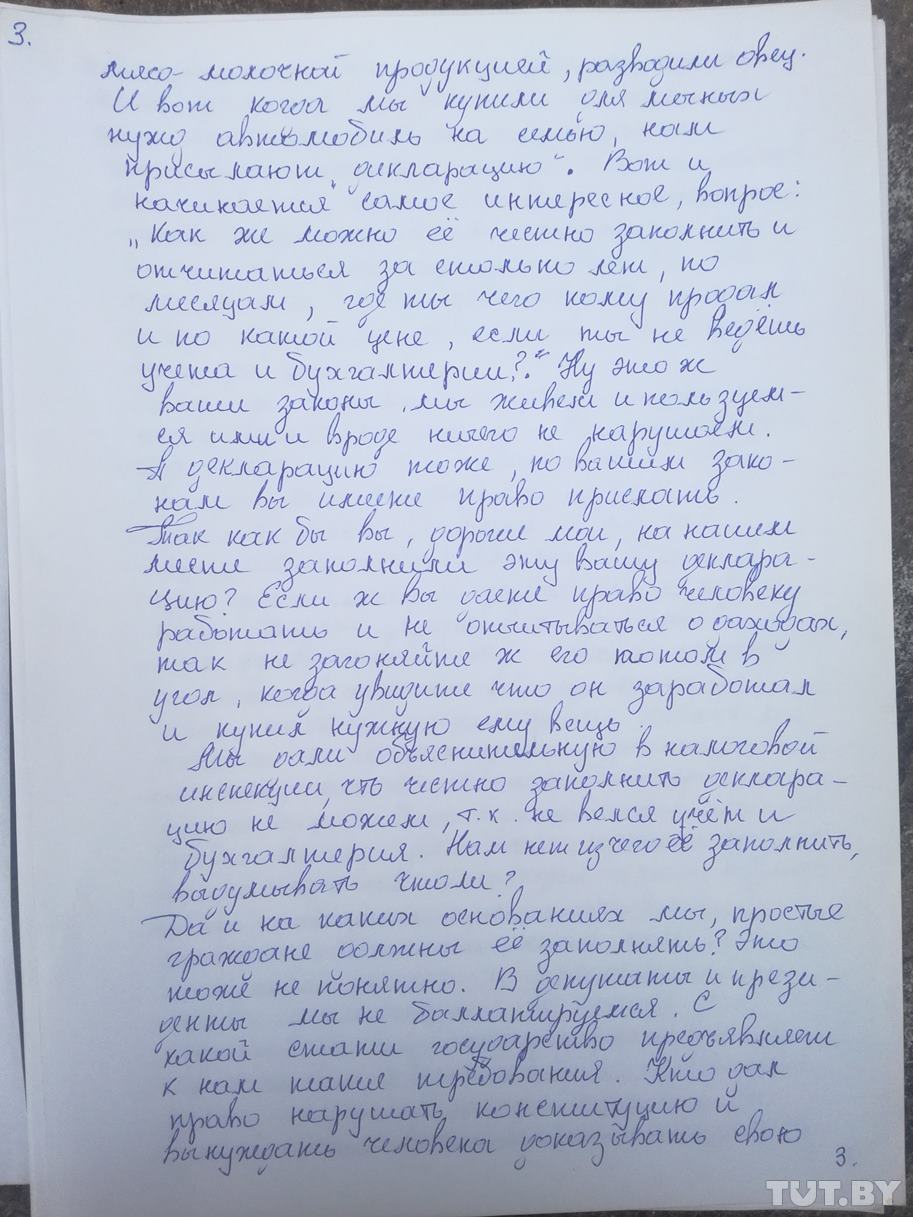 3.
мясо-молочной продукцией, разводили овец.
И вот когда мы купили для личных
нужд автомобиль на семью, нам
присылают „декларацию“. Вот и
начинается самое интересное, вопрос:
„Как же можно её честно заполнить и
отчитаться за столько лет, по
месяцам, где ты чего кому продал
и по какой цене, если ты не ведёшь
учета и бухгалтерии?“ Ну это ж
ваши законы, мы живем и пользуем-
ся ими и вроде ничего не нарушаем.
А декларацию тоже, по вашим зако-
нам вы имеете право прислать.
Так как бы вы, дорогие мои, на нашем
месте заполнили эту вашу деклара-
цию? Если ж вы даете право человеку
работать и не отчитываться о доходах,
так не загоняйте ж его потом в
угол, когда увидите что он заработал
и купил нужную ему вещь.
Мы дали объяснительную в налоговой
инспекции, чть честно заполнить деклара-
цию не можем, т.к. не велся учёт и
бухгалтерия. Нам нет из чего её заполнить,
выдумывать чтоли?
Да и на каких основаниях мы, простые
граждане должны её заполнять? Это
тоже не понятно. В депутаты и прези-
денты мы не баллатируемся. С
какой стати государство предъявляет
к нам такие требования. Кто дал
право нарушать конституцию и
вынуждать человека доказывать свою
3.
TUT.BY